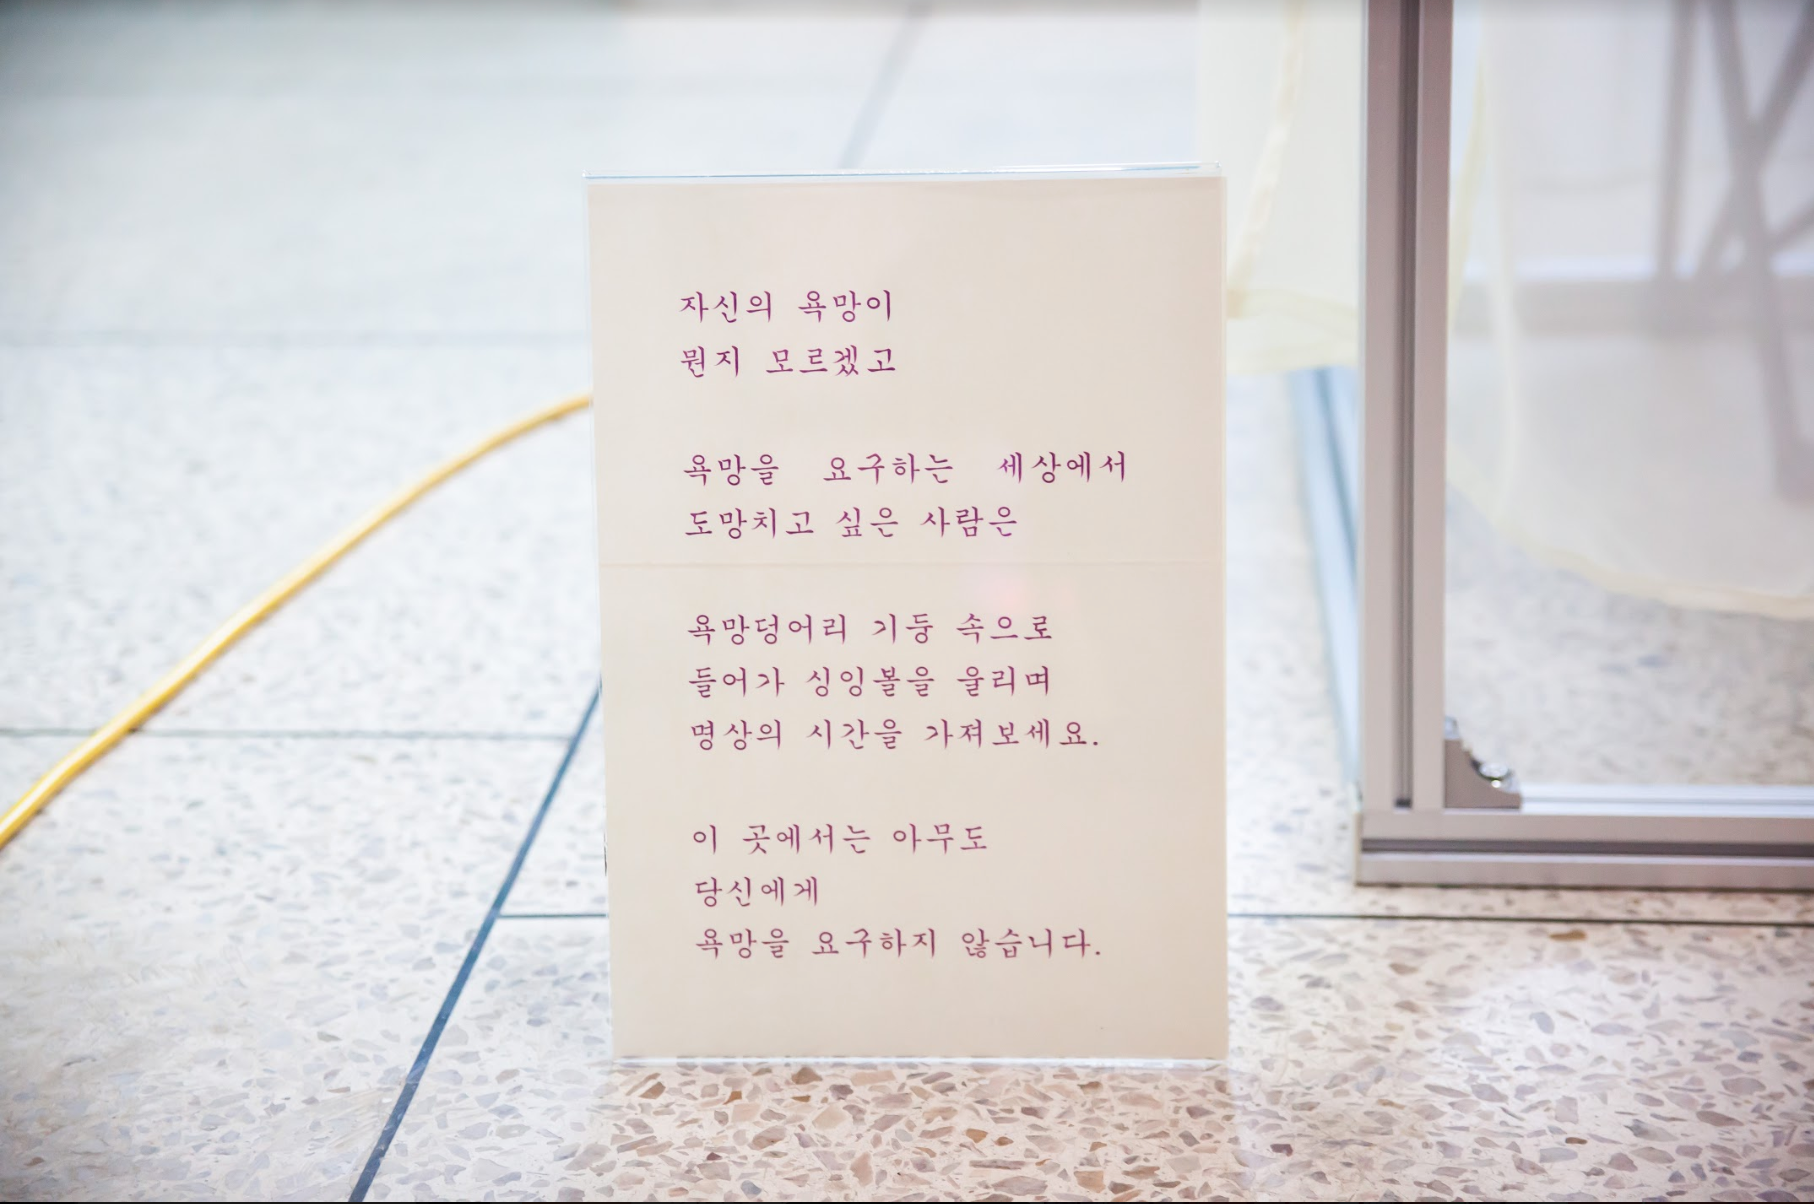 자신의 욕망이
뭔지 모르겠고
욕망을 요구하는 세상에서
도망치고 싶은 사람은
욕망덩어리 기둥 속으로
들어가 싱잉볼을 울리며
명상의 시간을 가져보세요.
이 곳에서는 아무도
당신에게
욕망을 요구하지 않습니다.